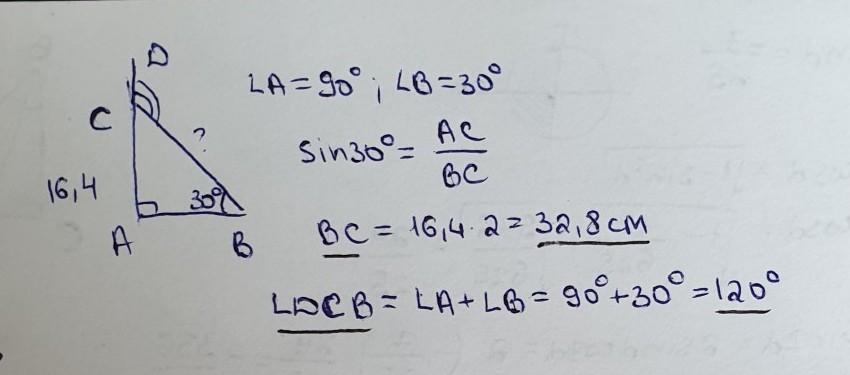 D
C
?
16,4
30°
A
B
∠A=90°; ∠B=30°
Sin30°= AC
BC
BC = 16,4·2= 32,8см
∠DCB = ∠A+∠B= 90°+30°=120°